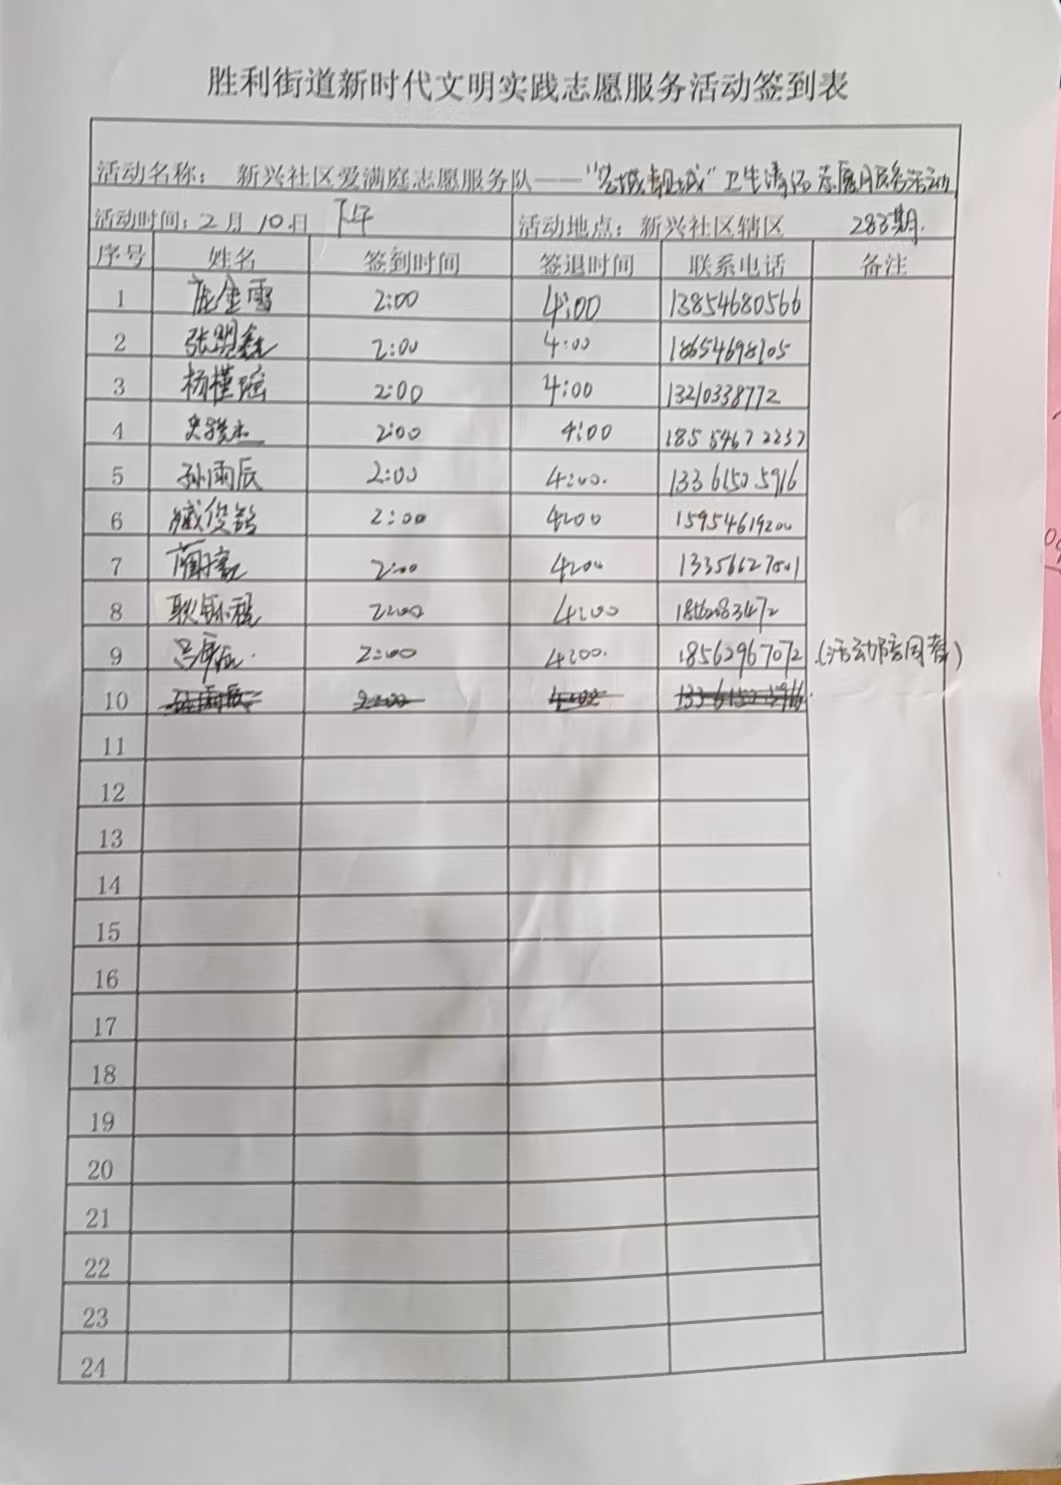 胜利街道新时代文明实践志愿服务活动签到表
活动名称： 新兴社区爱满庭志愿服务队—— 卫生清洁志愿服务活动
活动时间：2月10日 下午 活动地点：新兴社区辖区 283期.
序号 姓名 签到时间 签退时间 联系电话 备注
1 庞金雪 2:00 4:00 13854680566
2 张盟鑫 2:00 4:00 18654698105
3 杨槿瑶 2:00 4:00 13210338772
4 史骏杰 2:00 4:00 18554672237
5 孙雨辰 2:00 4:00. 13361505916
6 臧俊铭 2:00 4:00 15954619200
7 2:00 4:00 13356627801
8 2:00 4:00
9 2:00 4:00. 18562967072 (活动陪同者)
10 孙雨辰 2:00 4:00 13361505916.
11
12
13
14
15
16
17
18
19
20
21
22
23
24